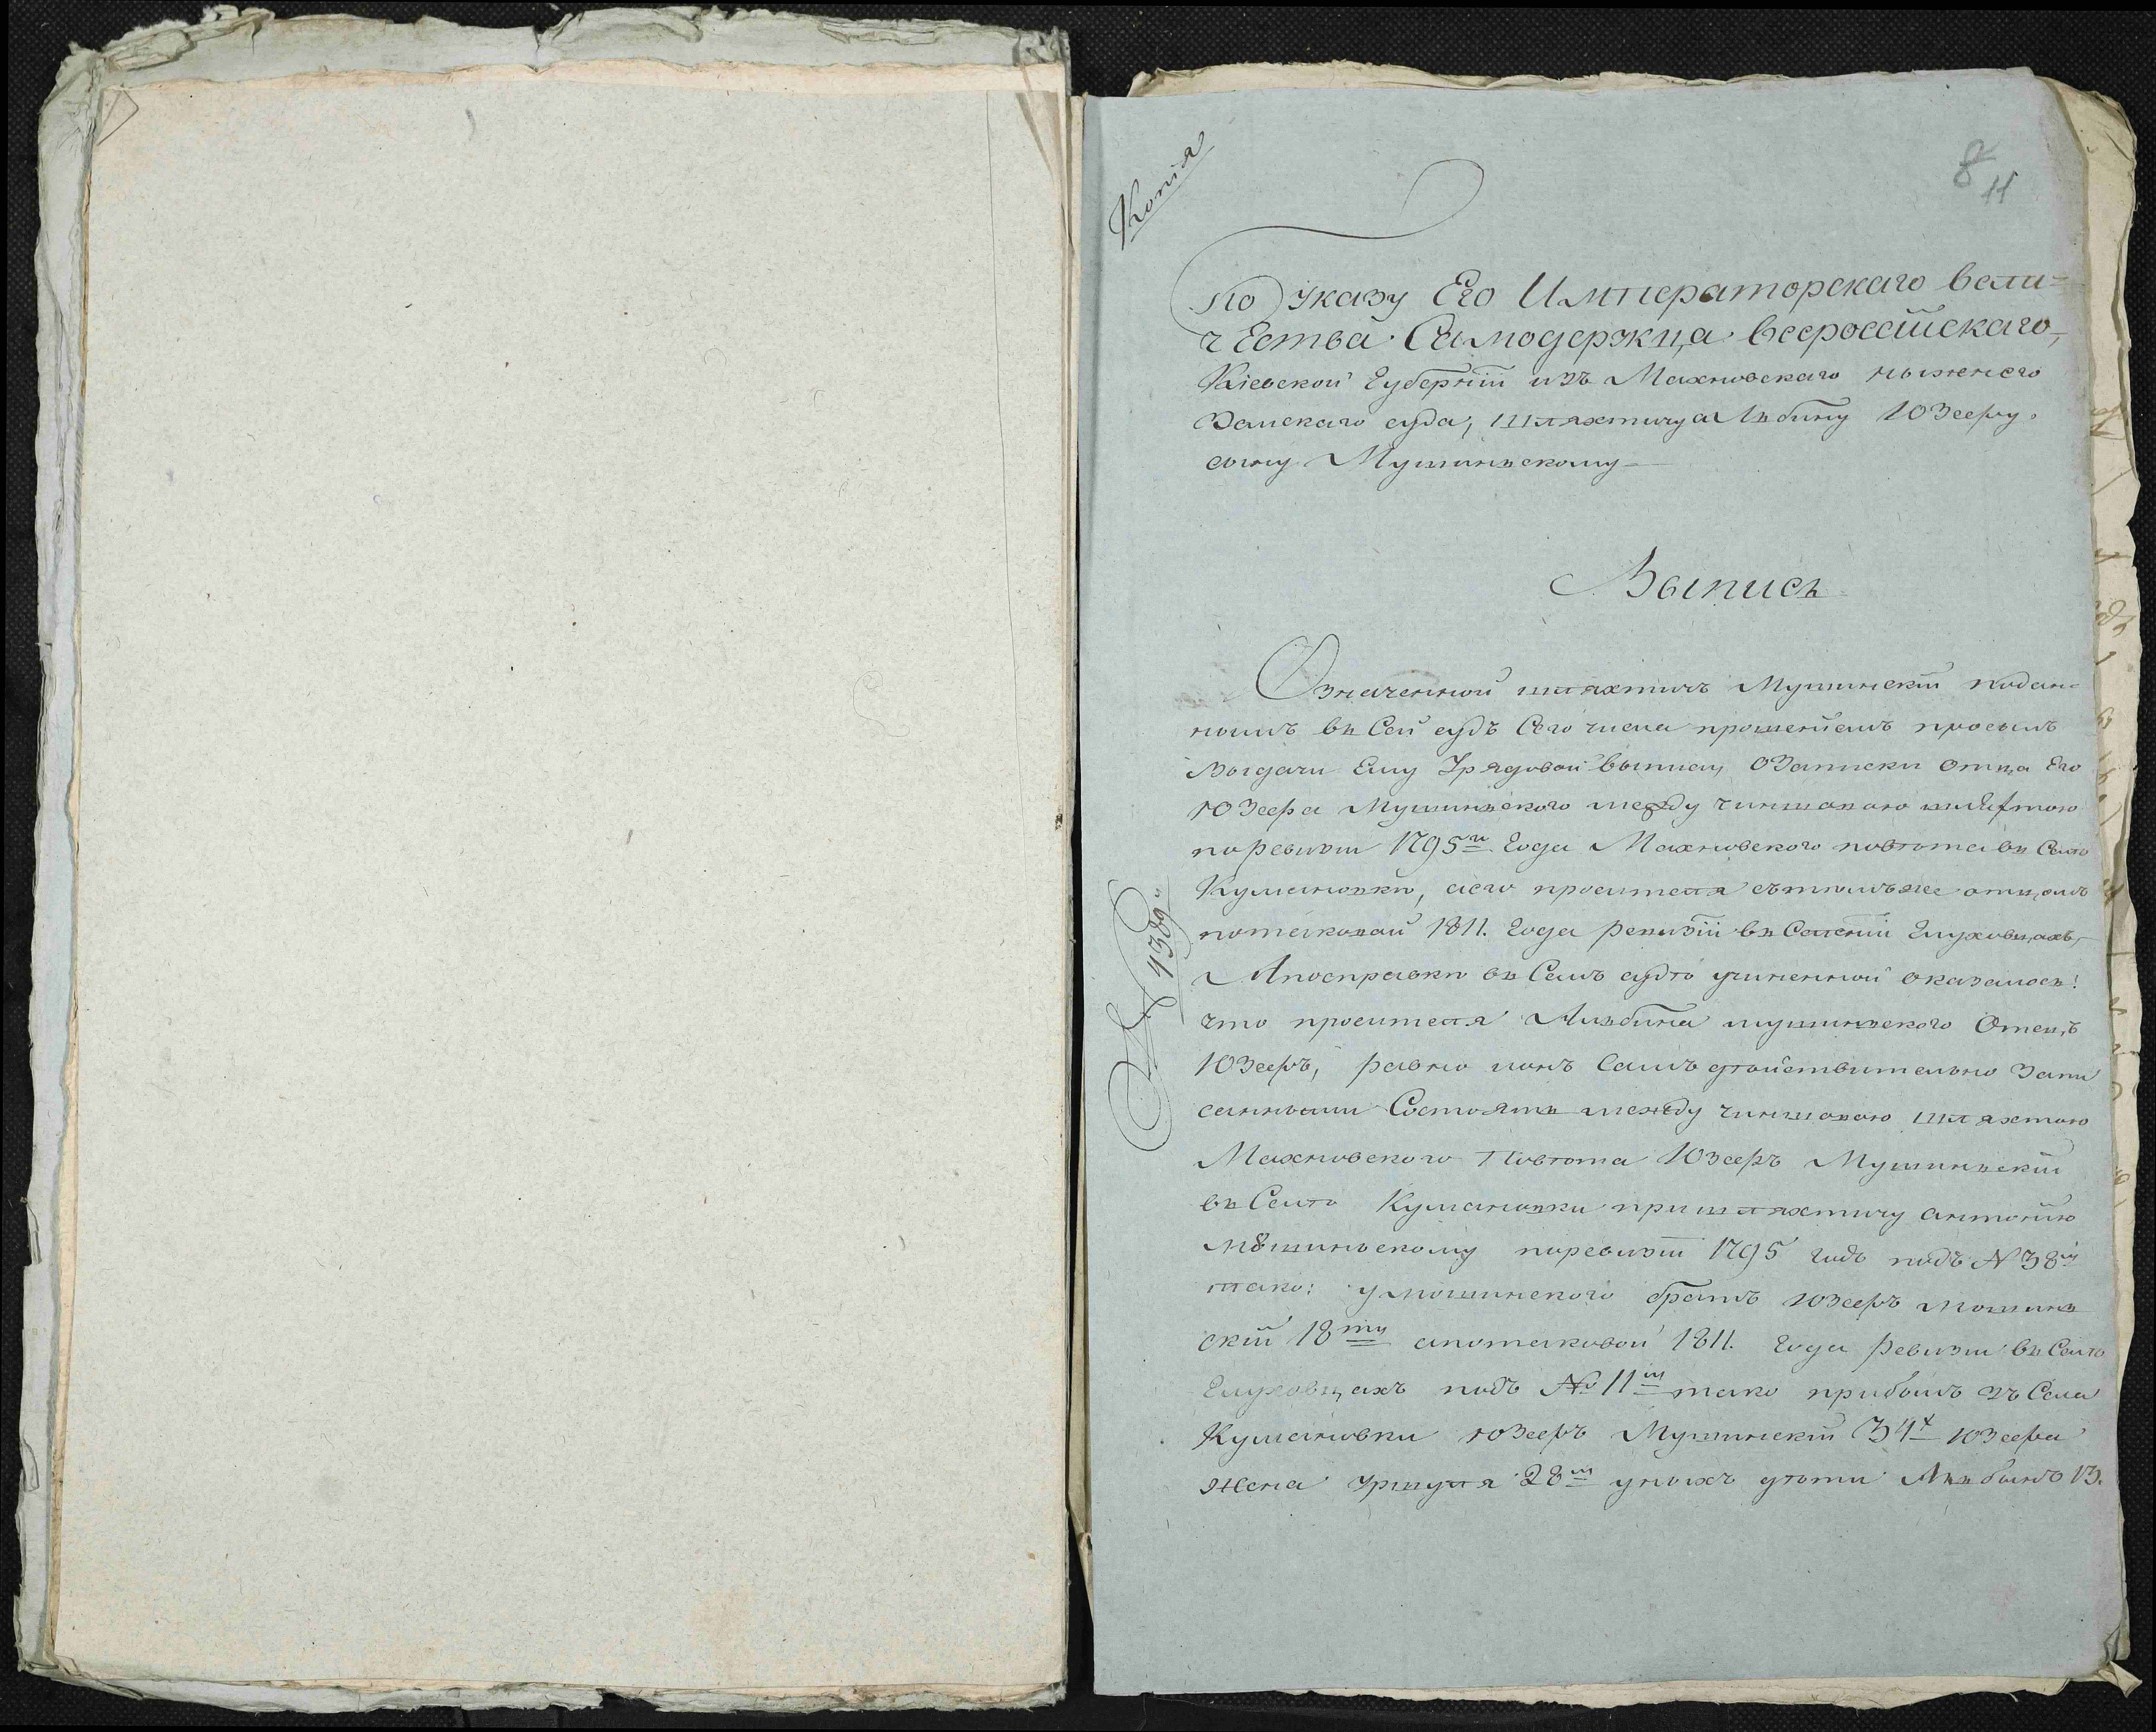 Копія
8
11
По указу Его Императорскаго вели=
чЕства Самодержца всероссійскаго,
Кіевской Губерніи изъ Махновскаго нынжнего
Земскаго суда, шляхтичу альбину Юзефу.
сыну Мушиньскому —
Выпись
Означенной шляхтичъ Мушинскій подан=
нымъ вь Сей судъ Сего числа прошеніемъ просилъ
Выдачи Ему Урядовой выписи, оЗаписки отца Его
ЮЗефа Мушиньского между чиншовою шляхтою
поревизіи 1795й Года Махновского повѣта вь Селѣ
Кумановки, аего просителя сътѣмъже отцемъ
потаковой 1811. Года ревизіи вь Селеніи Глуховцахъ,
Апосправки вь Семъ судѣ учиненной оказалось!
что просителя Альбина мушиньского Отецъ
ЮЗефъ, равно ионъ Самъ дѣйствительно Запи
санными Состоятъ между чиншовою шляхтою
Махновского Повѣта ЮЗефъ Мушиньскій
вь Селѣ Кумановки пришляхтичу антонію
Мꙋшиньскому поревизіи 1795 годъ подъ №38м
тако: умошинского братъ ЮЗефъ мошинь
скій 18ти апотаковой 1811. Года ревизіи вь Селѣ
Глуховцахъ подъ № 11м тако прибылъ зъ Села
Кумановки юЗефъ Мушинскій 34х юЗефа
Жена Уршуля 28м уныхъ дѣти Альбинъ 13.
№ 1389й